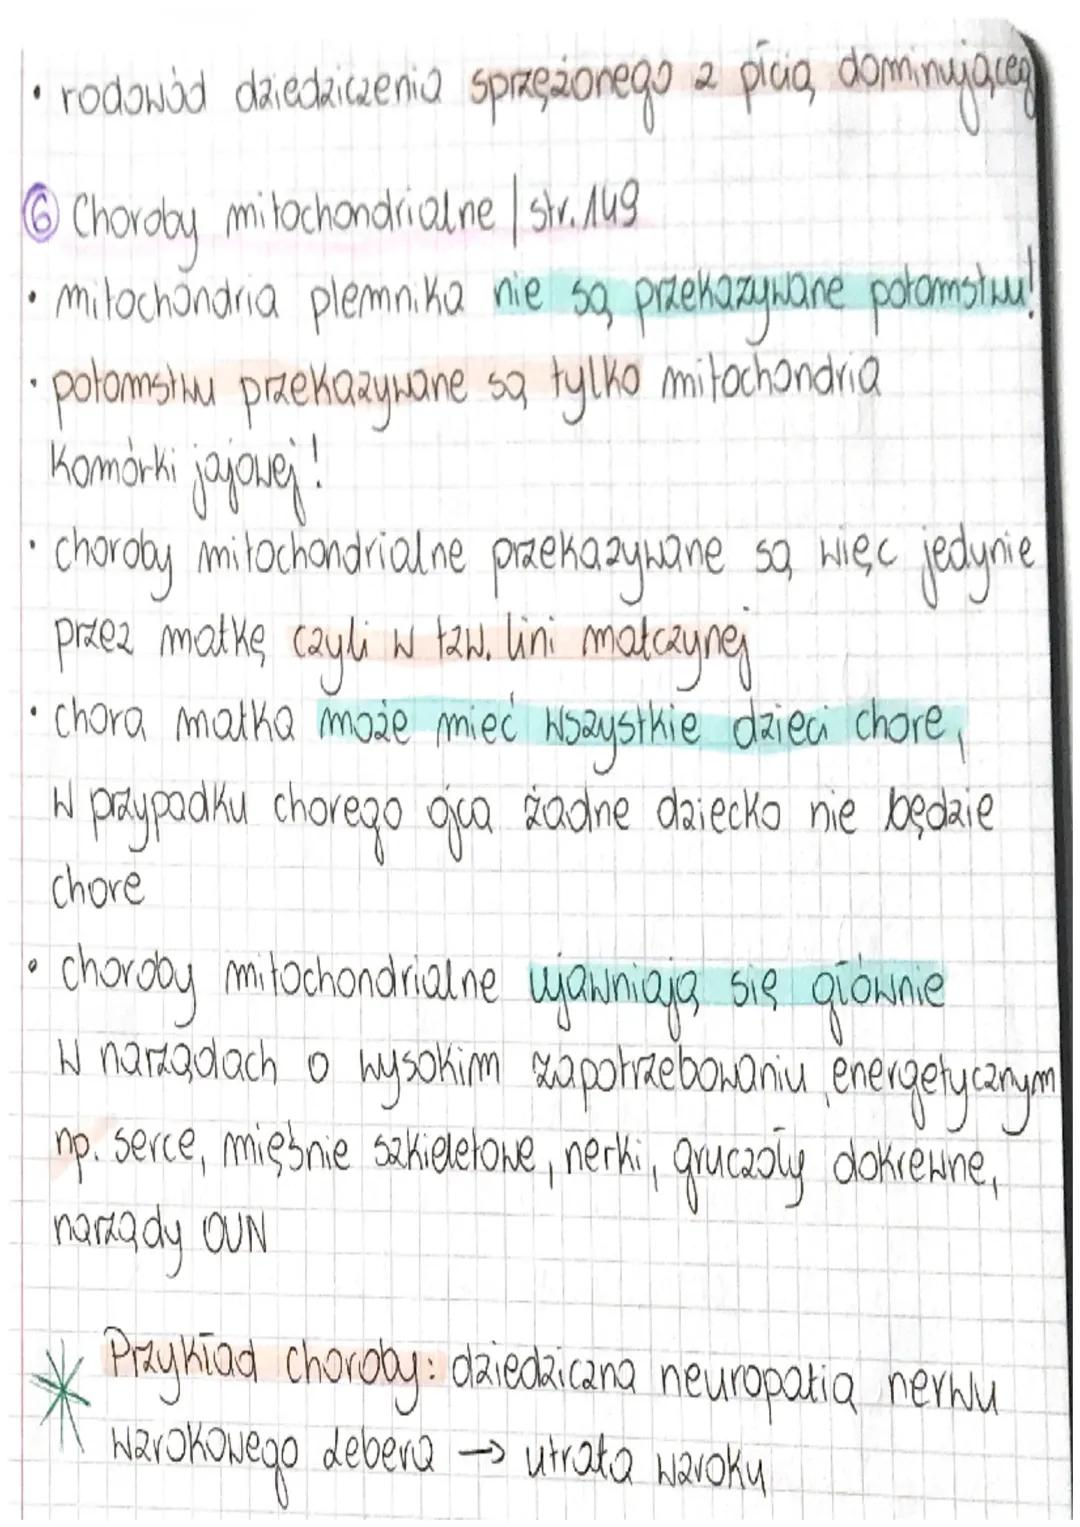 • rodowód dziedziczenia sprzężonego z płcią dominującego
⑥ Choroby mitochondrialne | str. 149
• mitochondria plemnika nie są przekazywane potomstwu!
• potomstwu przekazywane są tylko mitochondria
komórki jajowej!
• choroby mitochondrialne przekazywane są więc jedynie
przez matkę czyli w tzw. lini matczynej
• chora matka może mieć wszystkie dzieci chore,
w przypadku chorego ojca żadne dziecko nie będzie
chore
• choroby mitochondrialne ujawniają się głównie
w narządach o wysokim zapotrzebowaniu energetycznym
np. serce, mięśnie szkieletowe, nerki, gruczoły dokrewne,
narządy OUN
Przykład choroby: dziedziczna neuropatia nerwu
wzrokowego Lebera → utrata wzroku